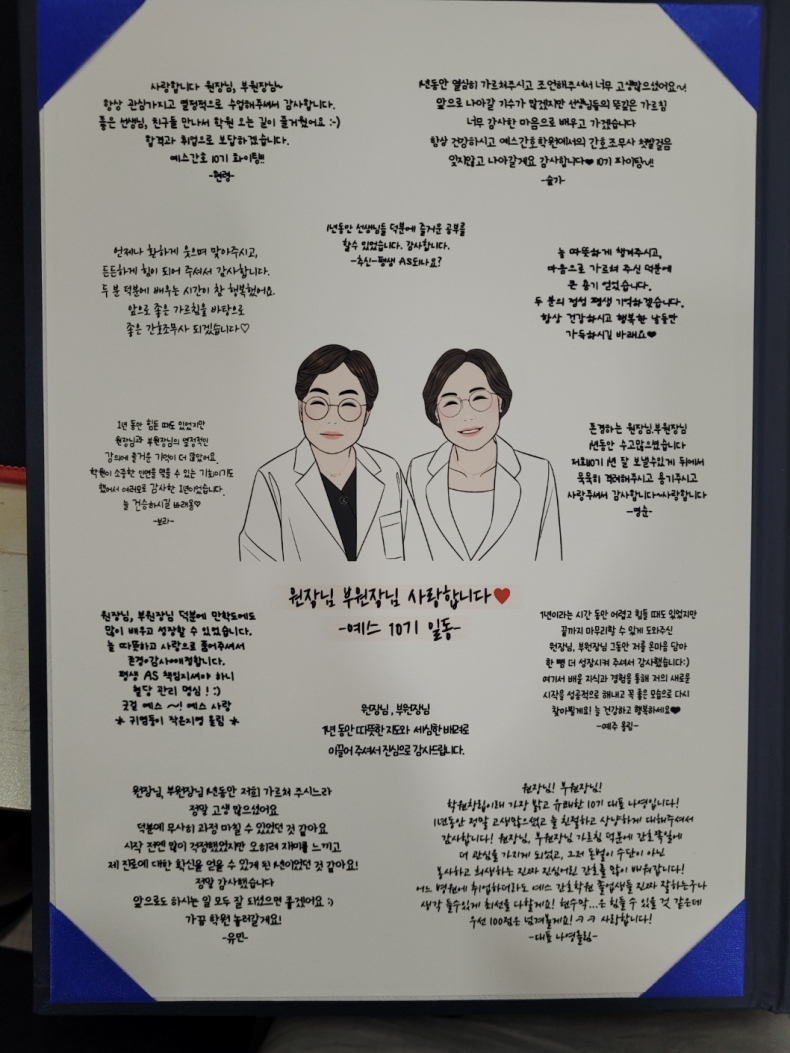 사랑합니다 원장님, 부원장님~
항상 관심가지고 열정적으로 수업해주셔서 감사합니다.
좋은 선생님, 친구들 만나서 학원 오는 길이 즐거웠어요 :-)
합격과 취업으로 보답하겠습니다.
예스간호 10기 화이팅!!
-원령-
1년동안 열심히 가르쳐주시고 조언해주셔서 너무 고생많으셨어요~!
앞으로 나아갈 기수가 많겠지만 선생님들의 뜻깊은 가르침
너무 감사한 마음으로 배우고 가겠습니다
항상 건강하시고 예스간호학원에서의 간호조무사 첫발걸음
잊지않고 나아갈게요 감사합니다♥ 10기 파이팅~!!
-슬가-
1년동안 선생님들 덕분에 즐거운 공부를
할수 있었습니다. 감사합니다.
-추신-평생 AS되나요?
언제나 환하게 웃으며 맞아주시고,
든든하게 힘이 되어 주셔서 감사합니다.
두 분 덕분에 배우는 시간이 참 행복했어요.
앞으로 좋은 가르침을 바탕으로
좋은 간호조무사 되겠습니다♡
늘 따뜻하게 챙겨주시고,
마음으로 가르쳐 주신 덕분에
큰 용기 얻었습니다.
두 분의 정성 평생 기억하겠습니다.
항상 건강하시고 행복한 날들만
가득하시길 바래요♥
1년 동안 힘든 때도 있었지만
원장님과 부원장님의 열정적인
강의에 즐거운 기억이 더 많았어요.
학원이 소중한 인연을 맺을 수 있는 기회이기도
했어서 여러모로 감사한 1년이었습니다.
늘 건승하시길 바래욤♡
-보라-
존경하는 원장님.부원장님
1년동안 수고많으셨습니다
저희10기 1년 잘 보낼수있게 뒤에서
묵묵히 격려해주시고 용기주시고
사랑주셔서 감사합니다~사랑합니다
-명순-
원장님 부원장님 사랑합니다♥
-예스 10기 일동-
원장님, 부원장님 덕분에 만학도에도
많이 배우고 성장할 수 있었습니다.
늘 따뜻하고 사랑으로 품어주셔서
존경♡감사♡애정합니다.
평생 AS 책임지셔야 하니
혈당 관리 명심 ! :)
굿걸 예스 ~! 예스 사랑
* 귀염둥이 작은지영 올림 *
1년이라는 시간 동안 어렵고 힘들 때도 있었지만
끝까지 마무리할 수 있게 도와주신
원장님, 부원장님 그동안 저를 온마음 담아
한 뼘 더 성장시켜 주셔서 감사했습니다:)
여기서 배운 지식과 경험을 통해 저의 새로운
시작을 성공적으로 해내고 꼭 좋은 모습으로 다시
찾아뵐게요! 늘 건강하고 행복하세요♥
-예주 올림-
원장님, 부원장님
1년 동안 따뜻한 지도와 세심한 배려로
이끌어 주셔서 진심으로 감사드립니다.
원장님, 부원장님 1년동안 저희 가르쳐 주시느라
정말 고생 많으셨어요
덕분에 무사히 과정 마칠 수 있었던 것 같아요
시작 전엔 많이 걱정했었지만 오히려 재미를 느끼고
제 진로에 대한 확신을 얻을 수 있게 된 1년이었던 것 같아요!
정말 감사했습니다
앞으로도 하시는 일 모두 잘 되셨으면 좋겠어요 :)
가끔 학원 놀러갈게요!
-유민-
원장님! 부원장님!
학원창립이래 가장 밝고 유쾌한 10기 대표 나영입니다!
1년동안 정말 고생많으셨고 늘 친절하고 상냥하게 대해주셔서
감사합니다! 원장님, 부원장님 가르침 덕분에 간호쪽일에
더 관심을 가지게 되었고, 그저 돈벌이 수단이 아닌
봉사하고 희생하는 진짜 진심어린 간호를 많이 배워갑니다!
어느 병원에 취업하더라도 예스 간호학원 졸업생들 진짜 잘하는구나
생각 들수있게 최선을 다할게요! 현수막...은 힘들 수 있을 것 같은데
우선 100점은 넘겨볼게요! ㅋㅋ 사랑합니다!
-대표 나영올림-